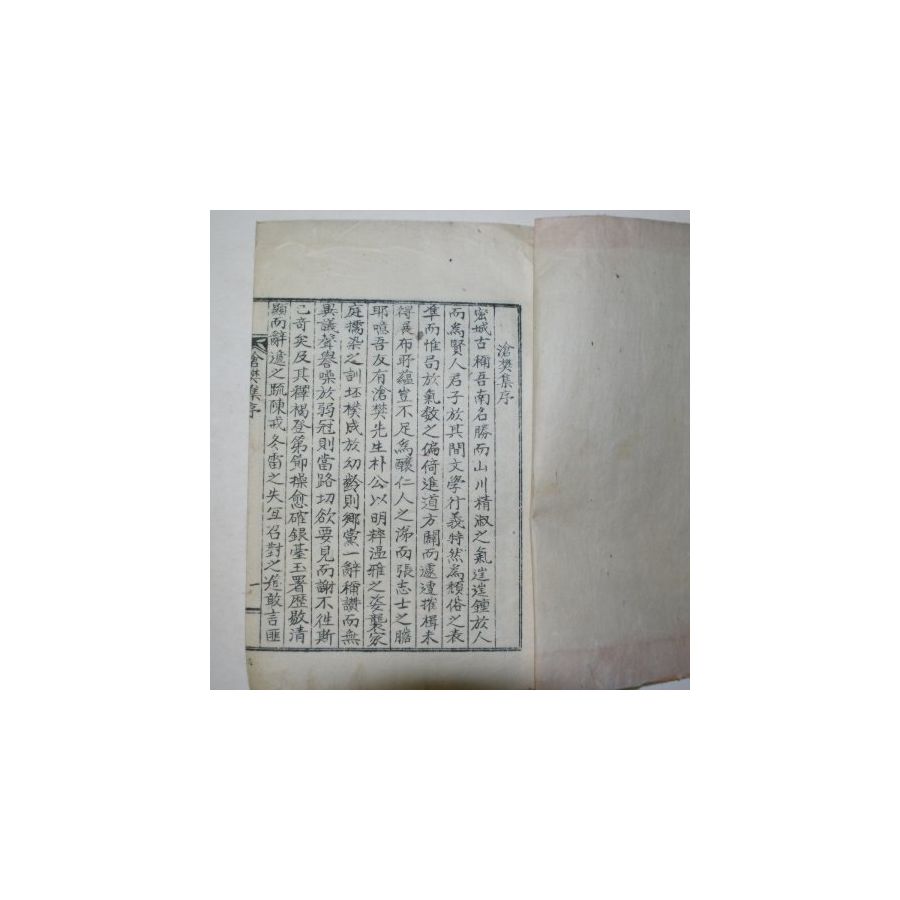 滄樊集序
蜜城古稱吾南名勝而山川精淑之氣迬迬鍾於人
而為賢人君子於其間文學行義特然為頹俗之表
準而惟局於氣数之偏倚進道方闢而遽遭摧楫未
得展布所蘊豈不足為釀仁人之涕而張志士之膽
耶噫吾友有滄樊先生朴公以明粹溫雅之姿襲家
庭擩染之訓坯樸成於幼齡則鄉黨一辭稱讚而無
異議聲譽噪於弱冠則當路切欲要見而謝不徃斯
已奇矣及其釋褐登第節操愈確銀臺玉署歷敭清
顯而辭遞之疏陳戒冬雷之失宜召對之敢言匪
滄樊集序
一